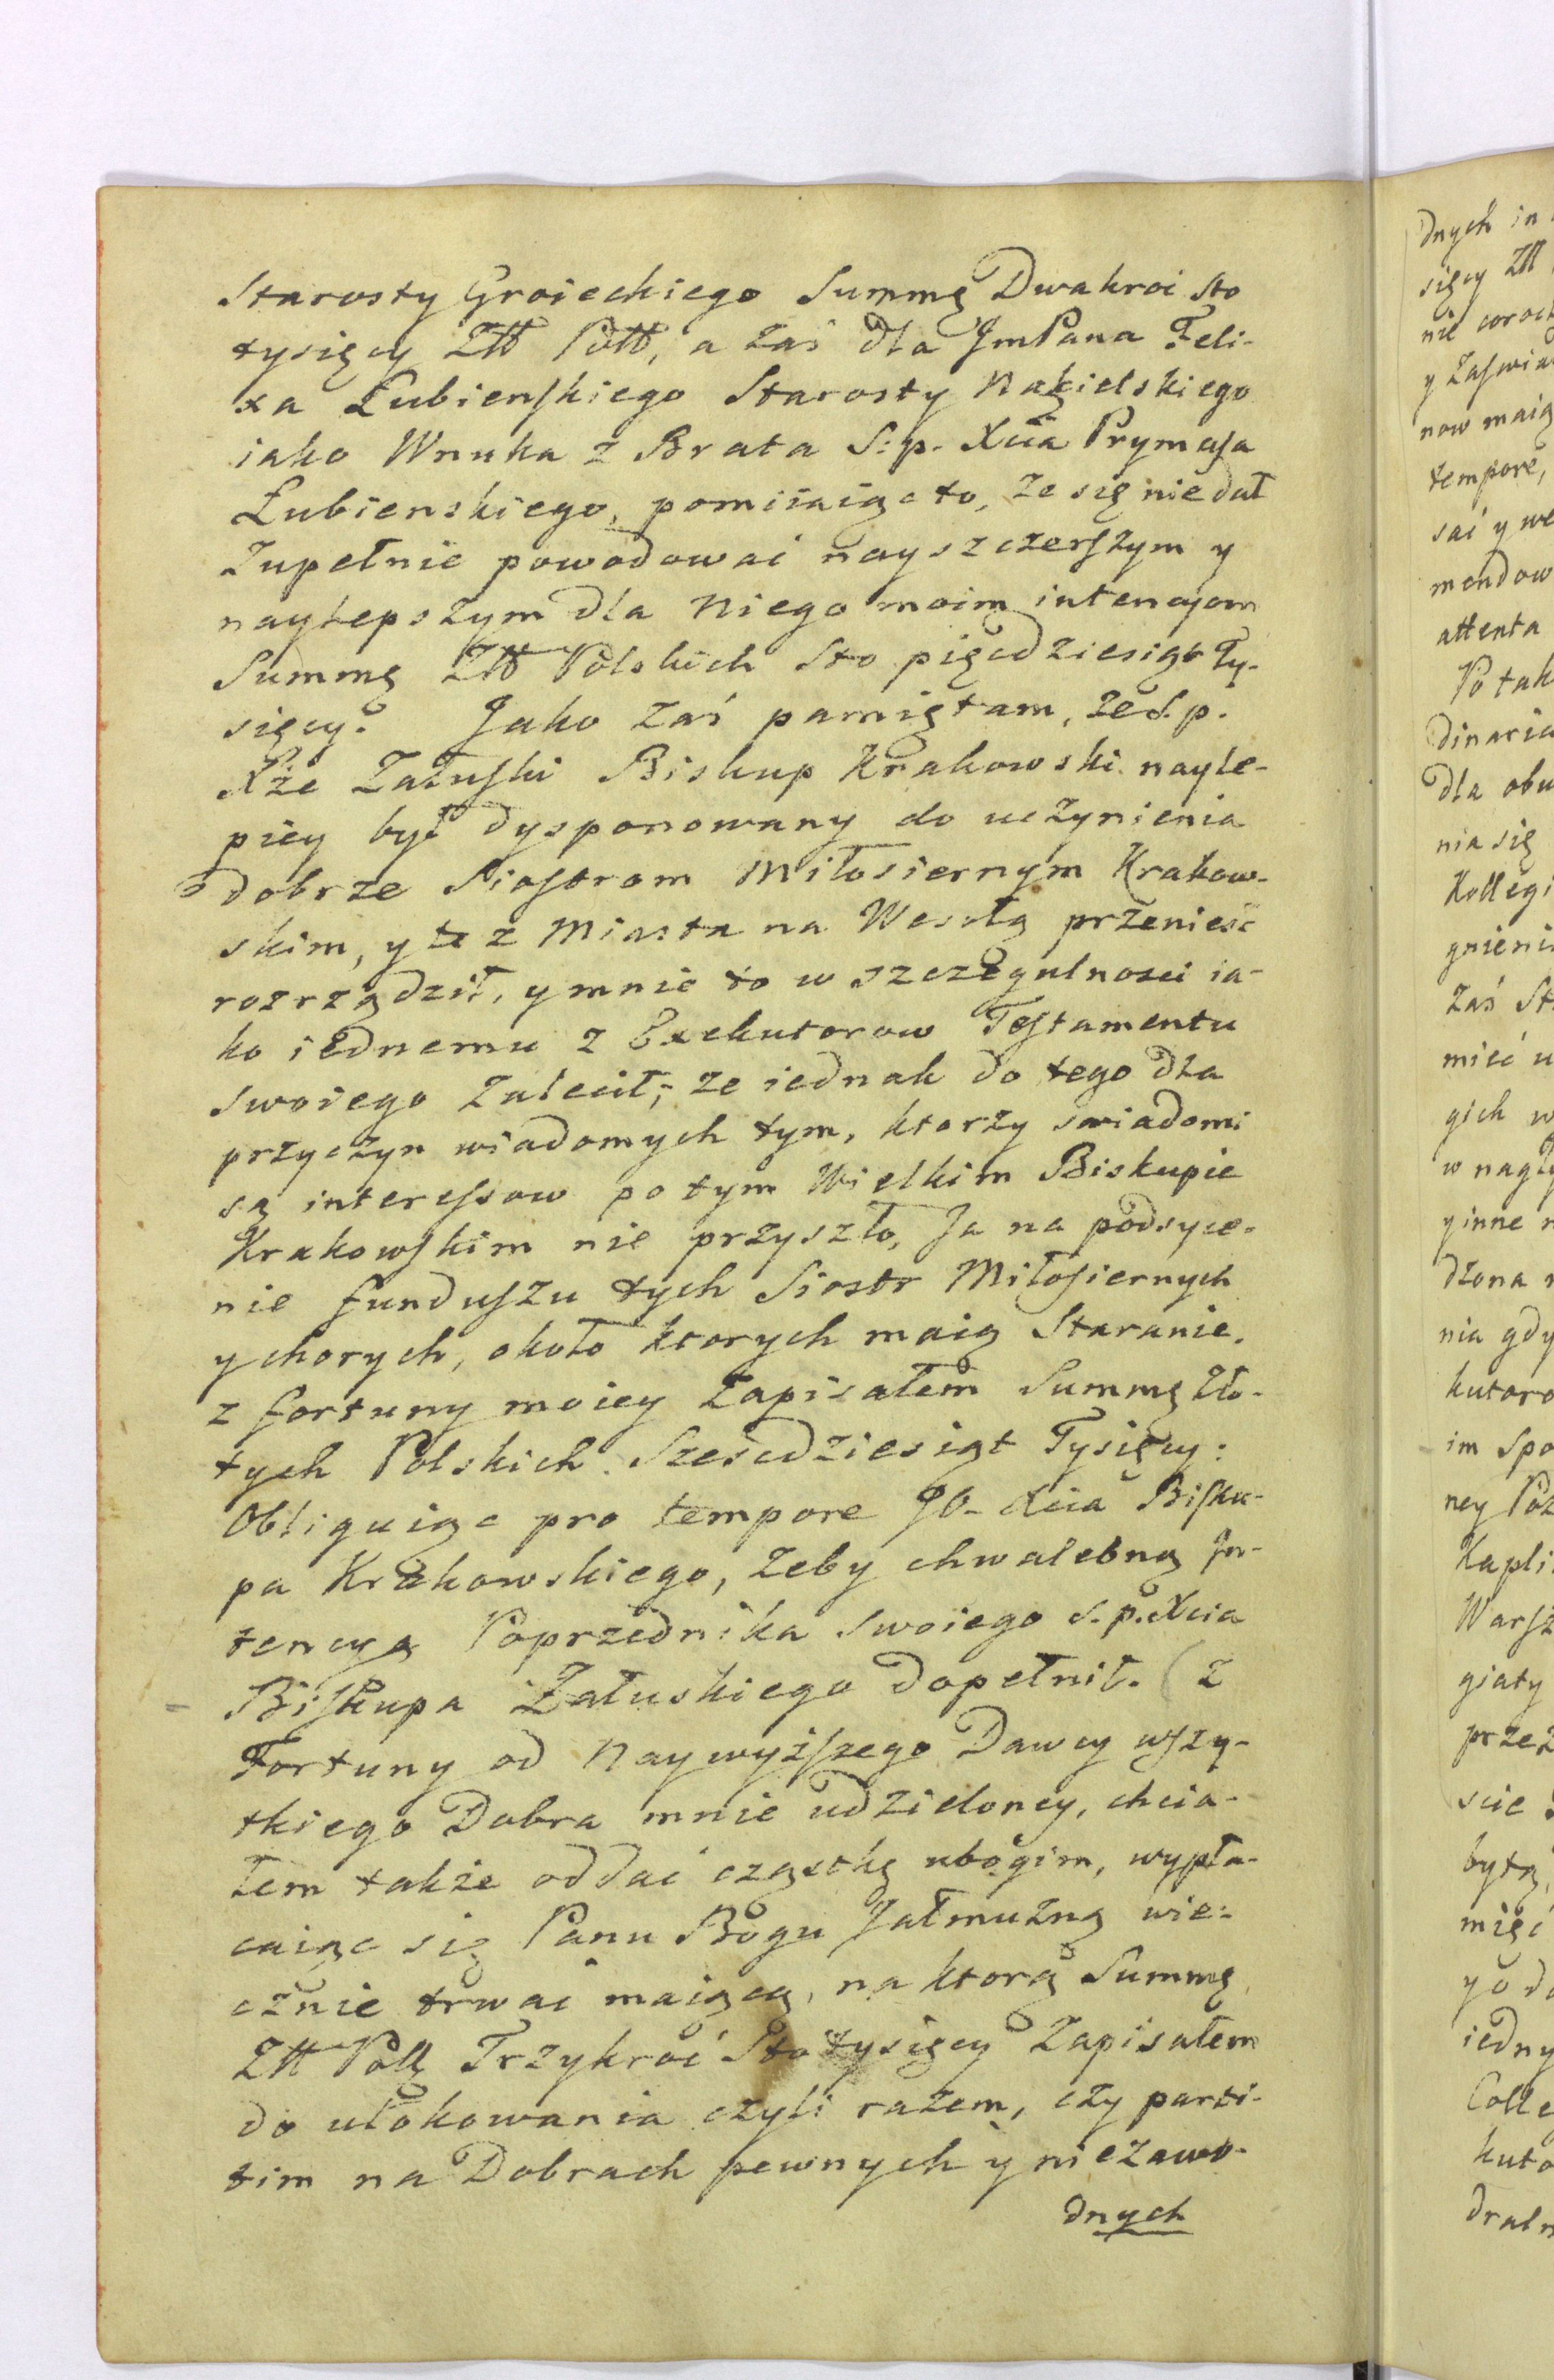 Starosty Groieckiego Summę Dwakroć sto
tysięcy Złł Poll, a zaś dla JmPana Feli-
xa Łubienskiego Starosty Nakielskiego
iako Wnuka z Brata S:p. Xcia Prymasa
Łubienskiego, pomiiaiąc to, że się nie dał
zupełnie powodować nayszczerszym y
naylepszym dla Niego moim intencyom
Summę Złł Polskich Sto pięcdziesiąt Ty-
sięcy. Jako zaś pamiętam, że S.p.
Xże Załuski Biskup Krakowski nayle-
piey był dysponowany do uczynienia
dobrze Siostrom Miłosiernym Krakow-
skim, y te z Miasta na Wesołą przenieść
rozrządził, y mnie to w szczegulności ia-
ko iednemu z Exekutorow Testamentu
swoiego zalecił; że iednak do tego dla
przyczyn wiadomych tym, ktorzy swiadomi
są interessow po tym Wielkim Biskupie
Krakowskim nie przyszło, Ja na podsyce-
nie funduszu tych Siostr Miłosiernych
y chorych, około ktorych maią Staranie,
z fortuny moiey zapisałem Summę Zło-
tych Polskich Szescdziesiąt Tysięcy:
Obliguiąc pro tempore JO- Xcia Bisku-
pa Krakowskiego, żeby chwalebną In-
tencyą Poprzednika swoiego s.p. Xcia
Biskupa Załuskiego dopełnił. (Z
Fortuny od Naywyższego Dawcy wszy-
tkiego Dobra mnie udzieloney, chcia-
łem także oddać cząstkę ubogim, wypła-
caiąc się Panu Bogu Jałmużną wie-
cznie trwać maiącą, na ktorą Summę
Złł Poll Trzykroć Sto tysięcy zapisałem
do ulokowania czyli razem, czy parti-
tim na Dobrach pewnych y niezawo-
dnych
dnych in
sięcy Złł
nie coroc
y Zaswia
now maią
tempore,
sać y we
mendow
attenta
Po tak
dinaria
dla obu
nia się
Kollegi
gnieni
zaś St
mieć u
gich w
w nagły
y inne n
dzona
nia gdy
kutoro
im Spo
ney Poz
Kapli
Warsz
giaty
przez
scie
bytą,
mieć
yo d
iedny
Colle
kuto
draln